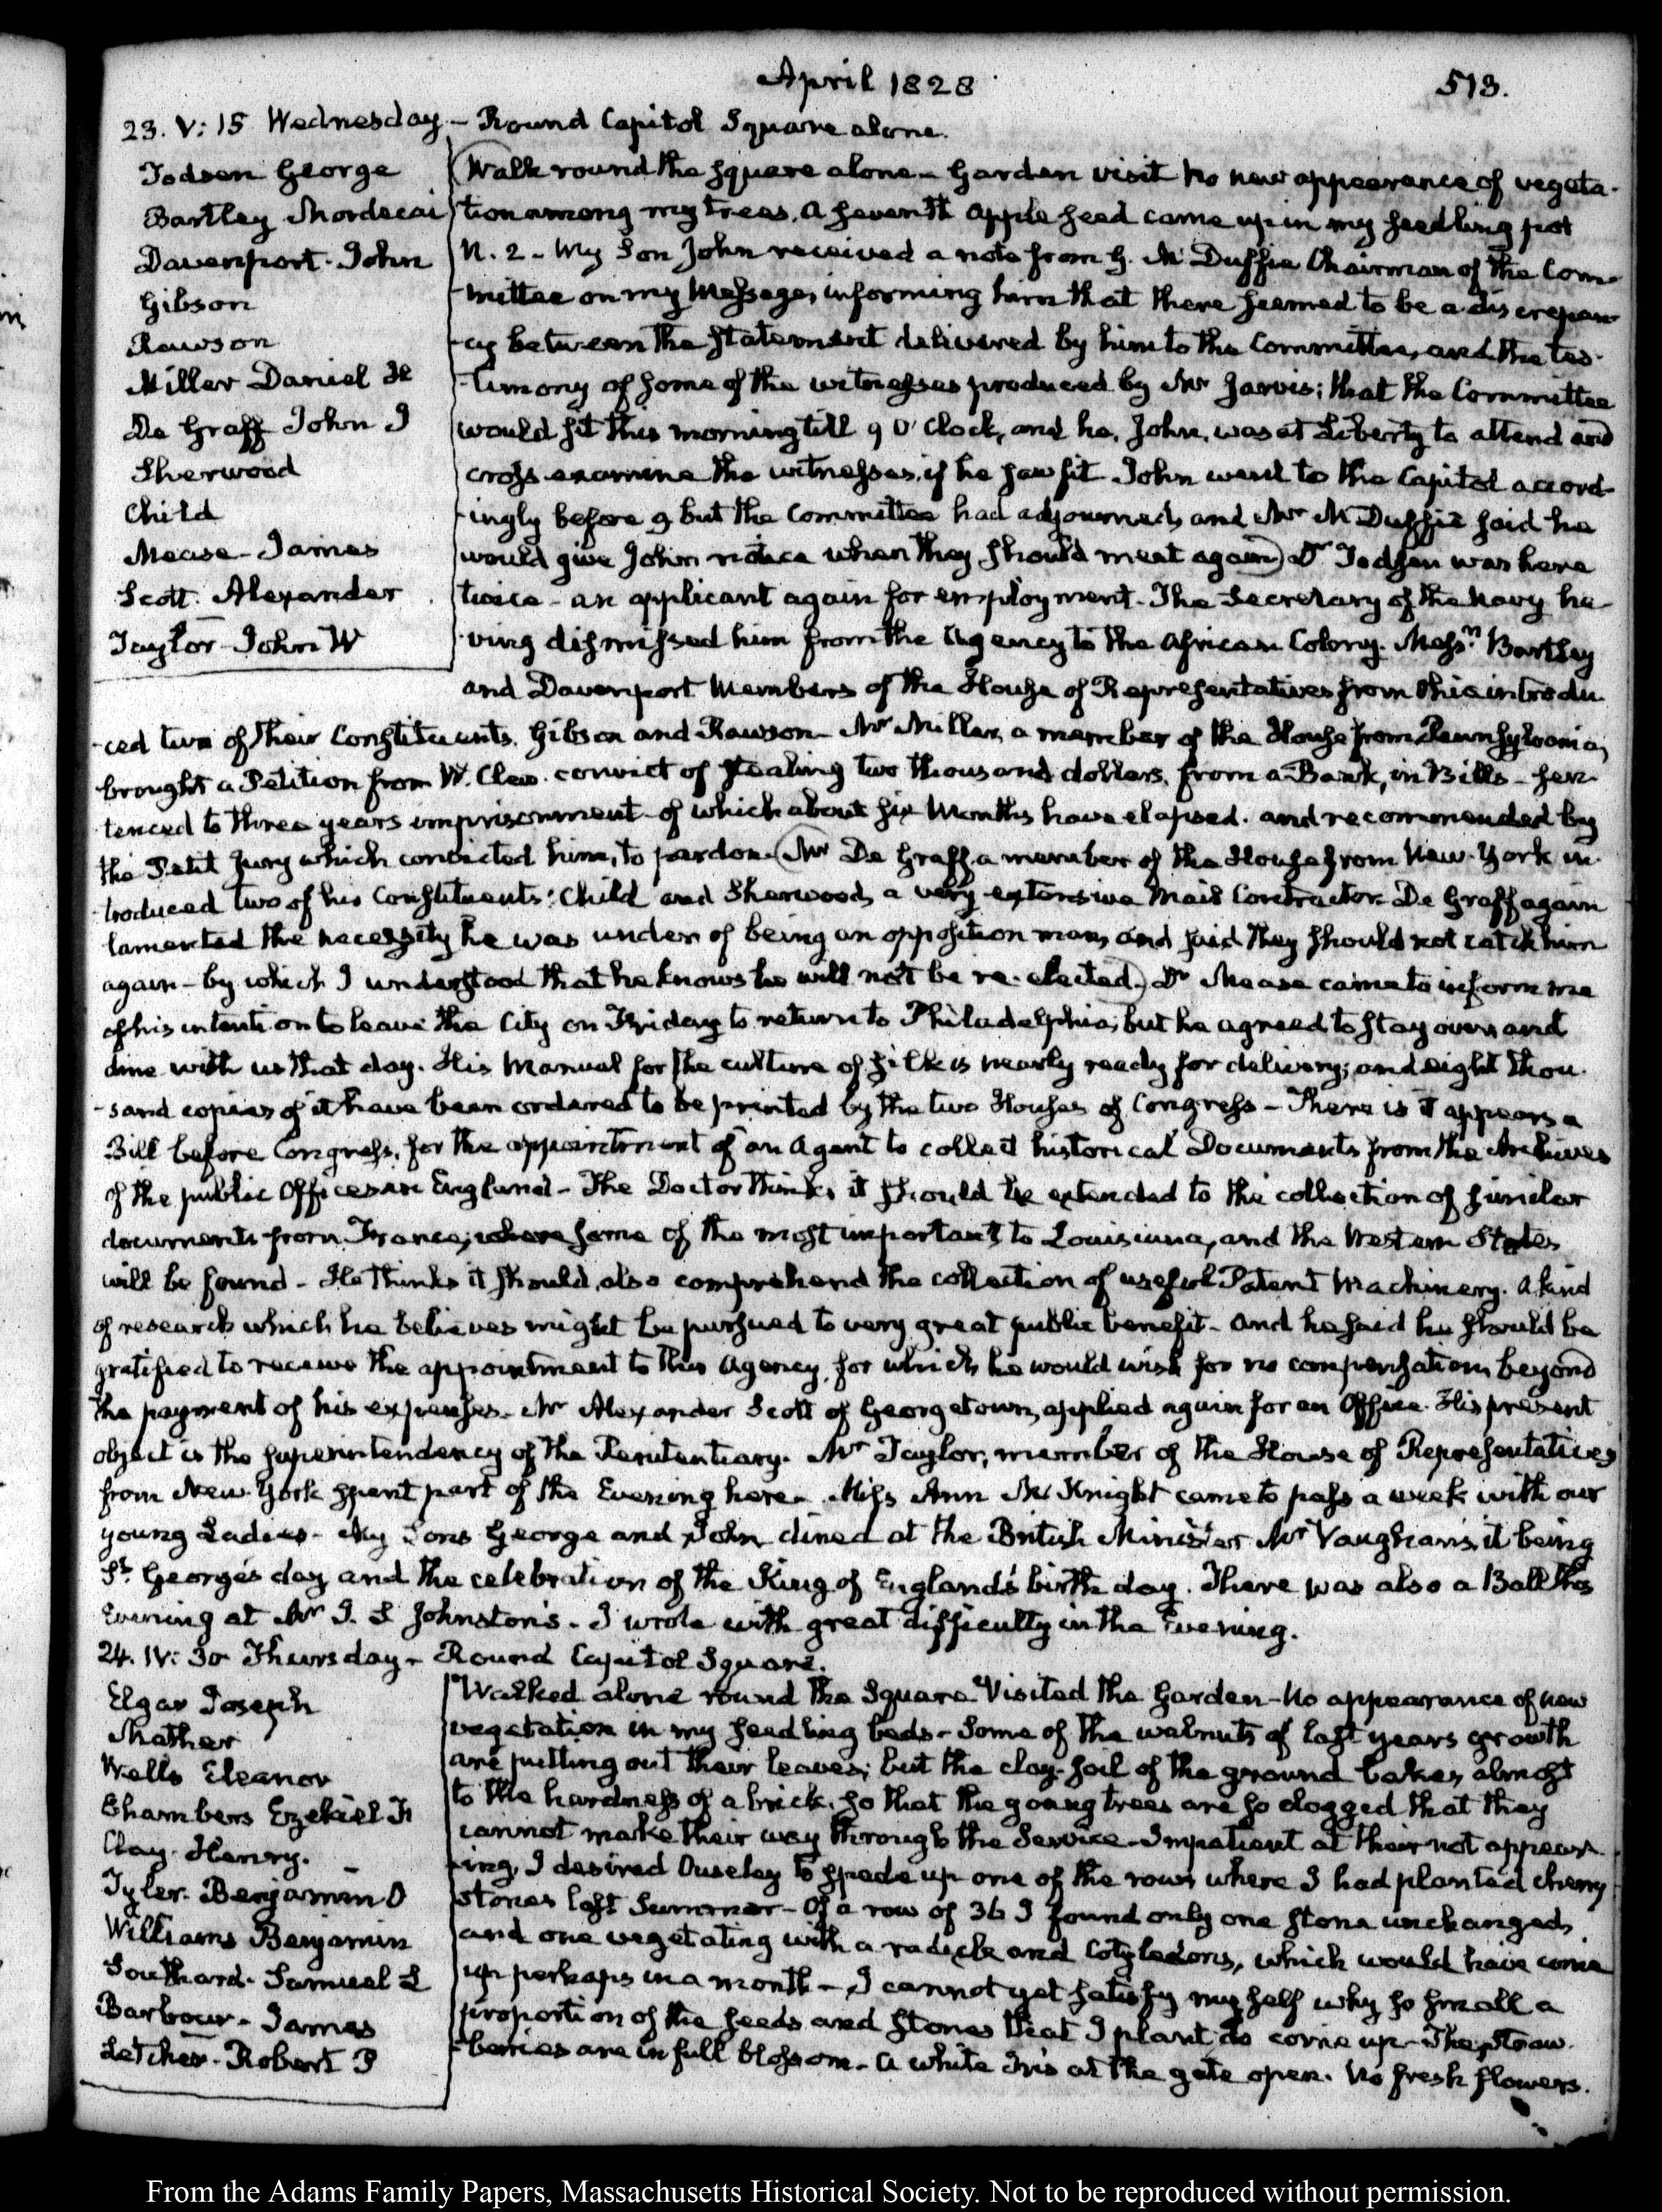 April 1828
513.
23. V: 15 Wednesday - Round Capitol Square alone.
Todsen George
Bartley Mordecai
Davenport. John
Gibson
Rawson
Miller Daniel H
De Graff John I
Sherwood
Child
Mease - James
Scott. Alexander
Taylor - John W
Walk round the square alone - Garden visit no new appearance of vegeta-
tion among my trees. A seventh apple seed came up in my seedling pot
N. 2 - My Son John received a note from G. Mc Duffie Chairman of the Com-
mittee on my Message, informing him that there seemed to be a discrepan-
cy between the statement delivered by him to the Committee, and the tes-
timony of some of the witnesses produced by Mr Jarvis; that the Committee
would sit this morning till 9 O'Clock, and he, John, was at Liberty to attend and
cross-examine the witnesses, if he saw fit. John went to the Capitol accord-
ingly before 9 but the Committee had adjourned, and Mr McDuffie said he
would give John notice when they should meet again) Dr Todsen was here
twice - an applicant again for employment. The Secretary of the Navy ha-
ving dismissed him from the Agency to the African Colony. Messrs Bartley
and Davenport Members of the House of Representatives from Ohio introdu-
ced two of their Constituents, Gibson and Rawson - Mr Miller, a member of the House from Pennsylvania,
brought a Petition from W. Clew. convict of stealing two thousand dollars, from a Bank, in Bills - sen-
tenced to three years imprisonment - of which about six Months have elapsed. and recommended by
the Petit Jury which convicted him, to pardon. (Mr De Graff a member of the House from New-York in-
troduced two of his Constituents: Child and Sherwood, a very extensive Mail Contractor. De Graff again
lamented the necessity he was under of being an opposition man, and said they should not catch him
again - by which I understood that he knows he will not be re-elected.) Dr Mease came to inform me
of his intention to leave the City on Friday to return to Philadelphia; but he agreed to stay over and
dine with us that day. His Manual for the culture of silk is nearly ready for delivery; and eight thou-
sand copies of it have been ordered to be printed by the two Houses of Congress - There is it appears a
Bill before Congress, for the appointment of an Agent to collect historical Documents from the Archives
of the public Offices in England - The Doctor thinks it should be extended to the collection of similar
documents from France; where some of the most important to Louisiana, and the Western States
will be found - He thinks it should also comprehend the collection of useful Patent Machinery. A kind
of research which he believes might be pursued to very great public benefit - and he said he should be
gratified to receive the appointment to this Agency, for which he would wish for no compensation beyond
the payment of his expenses. Mr Alexander Scott of Georgetown, applied again for an Office. His present
object is the superintendency of the Penitentiary. Mr Taylor, member of the House of Representatives
from New-York spent part of the Evening here - Miss Ann McKnight came to pass a week with our
young Ladies - My Sons George and John dined at the British Minister Mr Vaughan's, it being
St. George's day and the celebration of the King of England's birth day. There was also a Ball this
Evening at Mr J. S Johnston's - I wrote with great difficulty in the Evening.
24. IV: 30 Thursday - Round Capitol Square.
Elgar Joseph
Mather
Wells Eleanor
Chambers Ezekiel F.
Clay. Henry.
Tyler. Benjamin O
Williams Benjamin
Southard. Samuel L
Barbour - James
Letcher. Robert P
Walked alone round the Square Visited the Garden - No appearance of new
vegetation in my seedling beds - Some of the walnuts of last years growth
are putting out their leaves; but the clay-soil of the ground bakes almost
to the hardness of a brick. so that the young trees are so clogged that they
cannot make their way through the Service - Impatient at their not appear-
ing, I desired Ouseley to spade up one of the rows where I had planted cherry
stones last Summer - Of a row of 36 I found only one stone unchanged,
and one vegetating with a radicle and Cotyledons, which would have come
up perhaps in a month - I cannot yet satisfy myself why so small a
proportion of the seeds and stones that I plant, do come up - The Straw-
berries are in full blossom - a white Iris at the gate open. No fresh flowers.
From the Adams Family Papers, Massachusetts Historical Society. Not to be reproduced without permission.